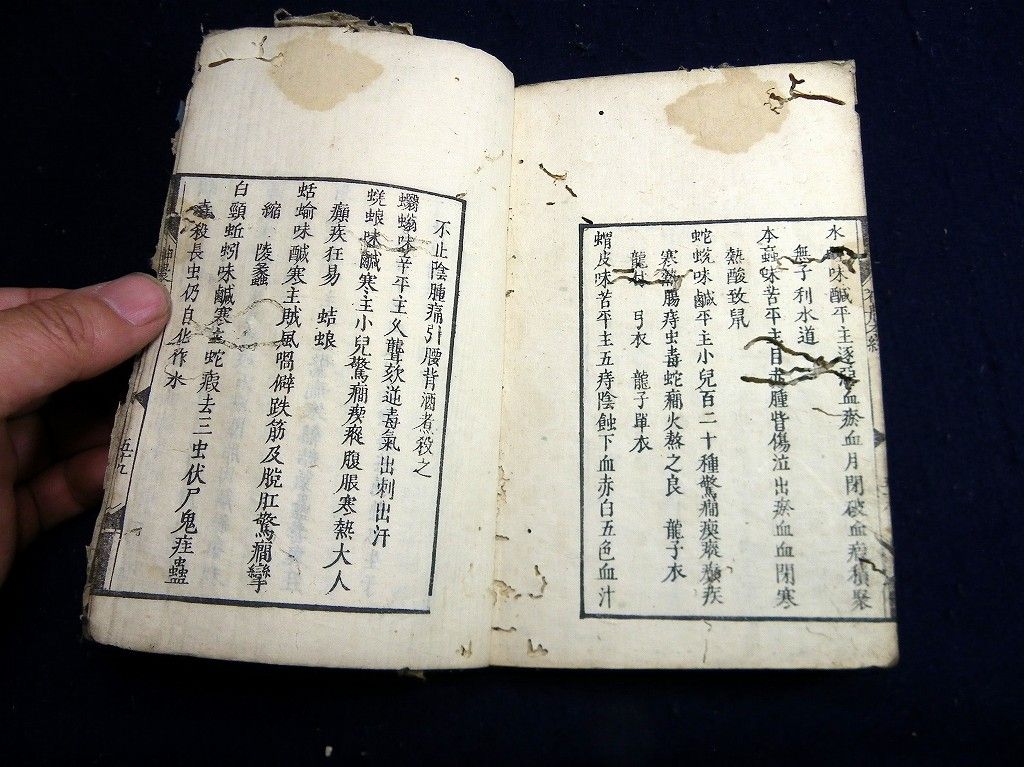 水蛭味鹹平主逐惡血瘀血月閉破血瘕積聚
無子利水道
木蝱味苦平主目赤腫眥傷泣出瘀血血閉寒
熱酸致㒱
蛇蛻味鹹平主小兒百二十種驚癇瘈瘲癲疾
寒熱腸痔虫毒蛇癇火熬之良 龍子衣
龍 弓衣 龍子單衣
蝟皮味苦平主五痔陰蝕下血赤白五色血汁
不止陰腫痛引腰背酒煮殺之
蠮螉味辛平主久聾欬逆毒氣出刺出汗
蜣蜋味鹹寒主小兒驚癇瘈瘲腹脹寒熱大人
癲疾狂易 蛣蜋
蛞蝓味鹹寒主賊風喎僻跌筋及脫肛驚癇攣
縮 陵蠡
白頸蚯蚓味鹹寒主蛇瘕去三虫伏尸鬼疰蠱
毒殺長虫仍自化作水
五九